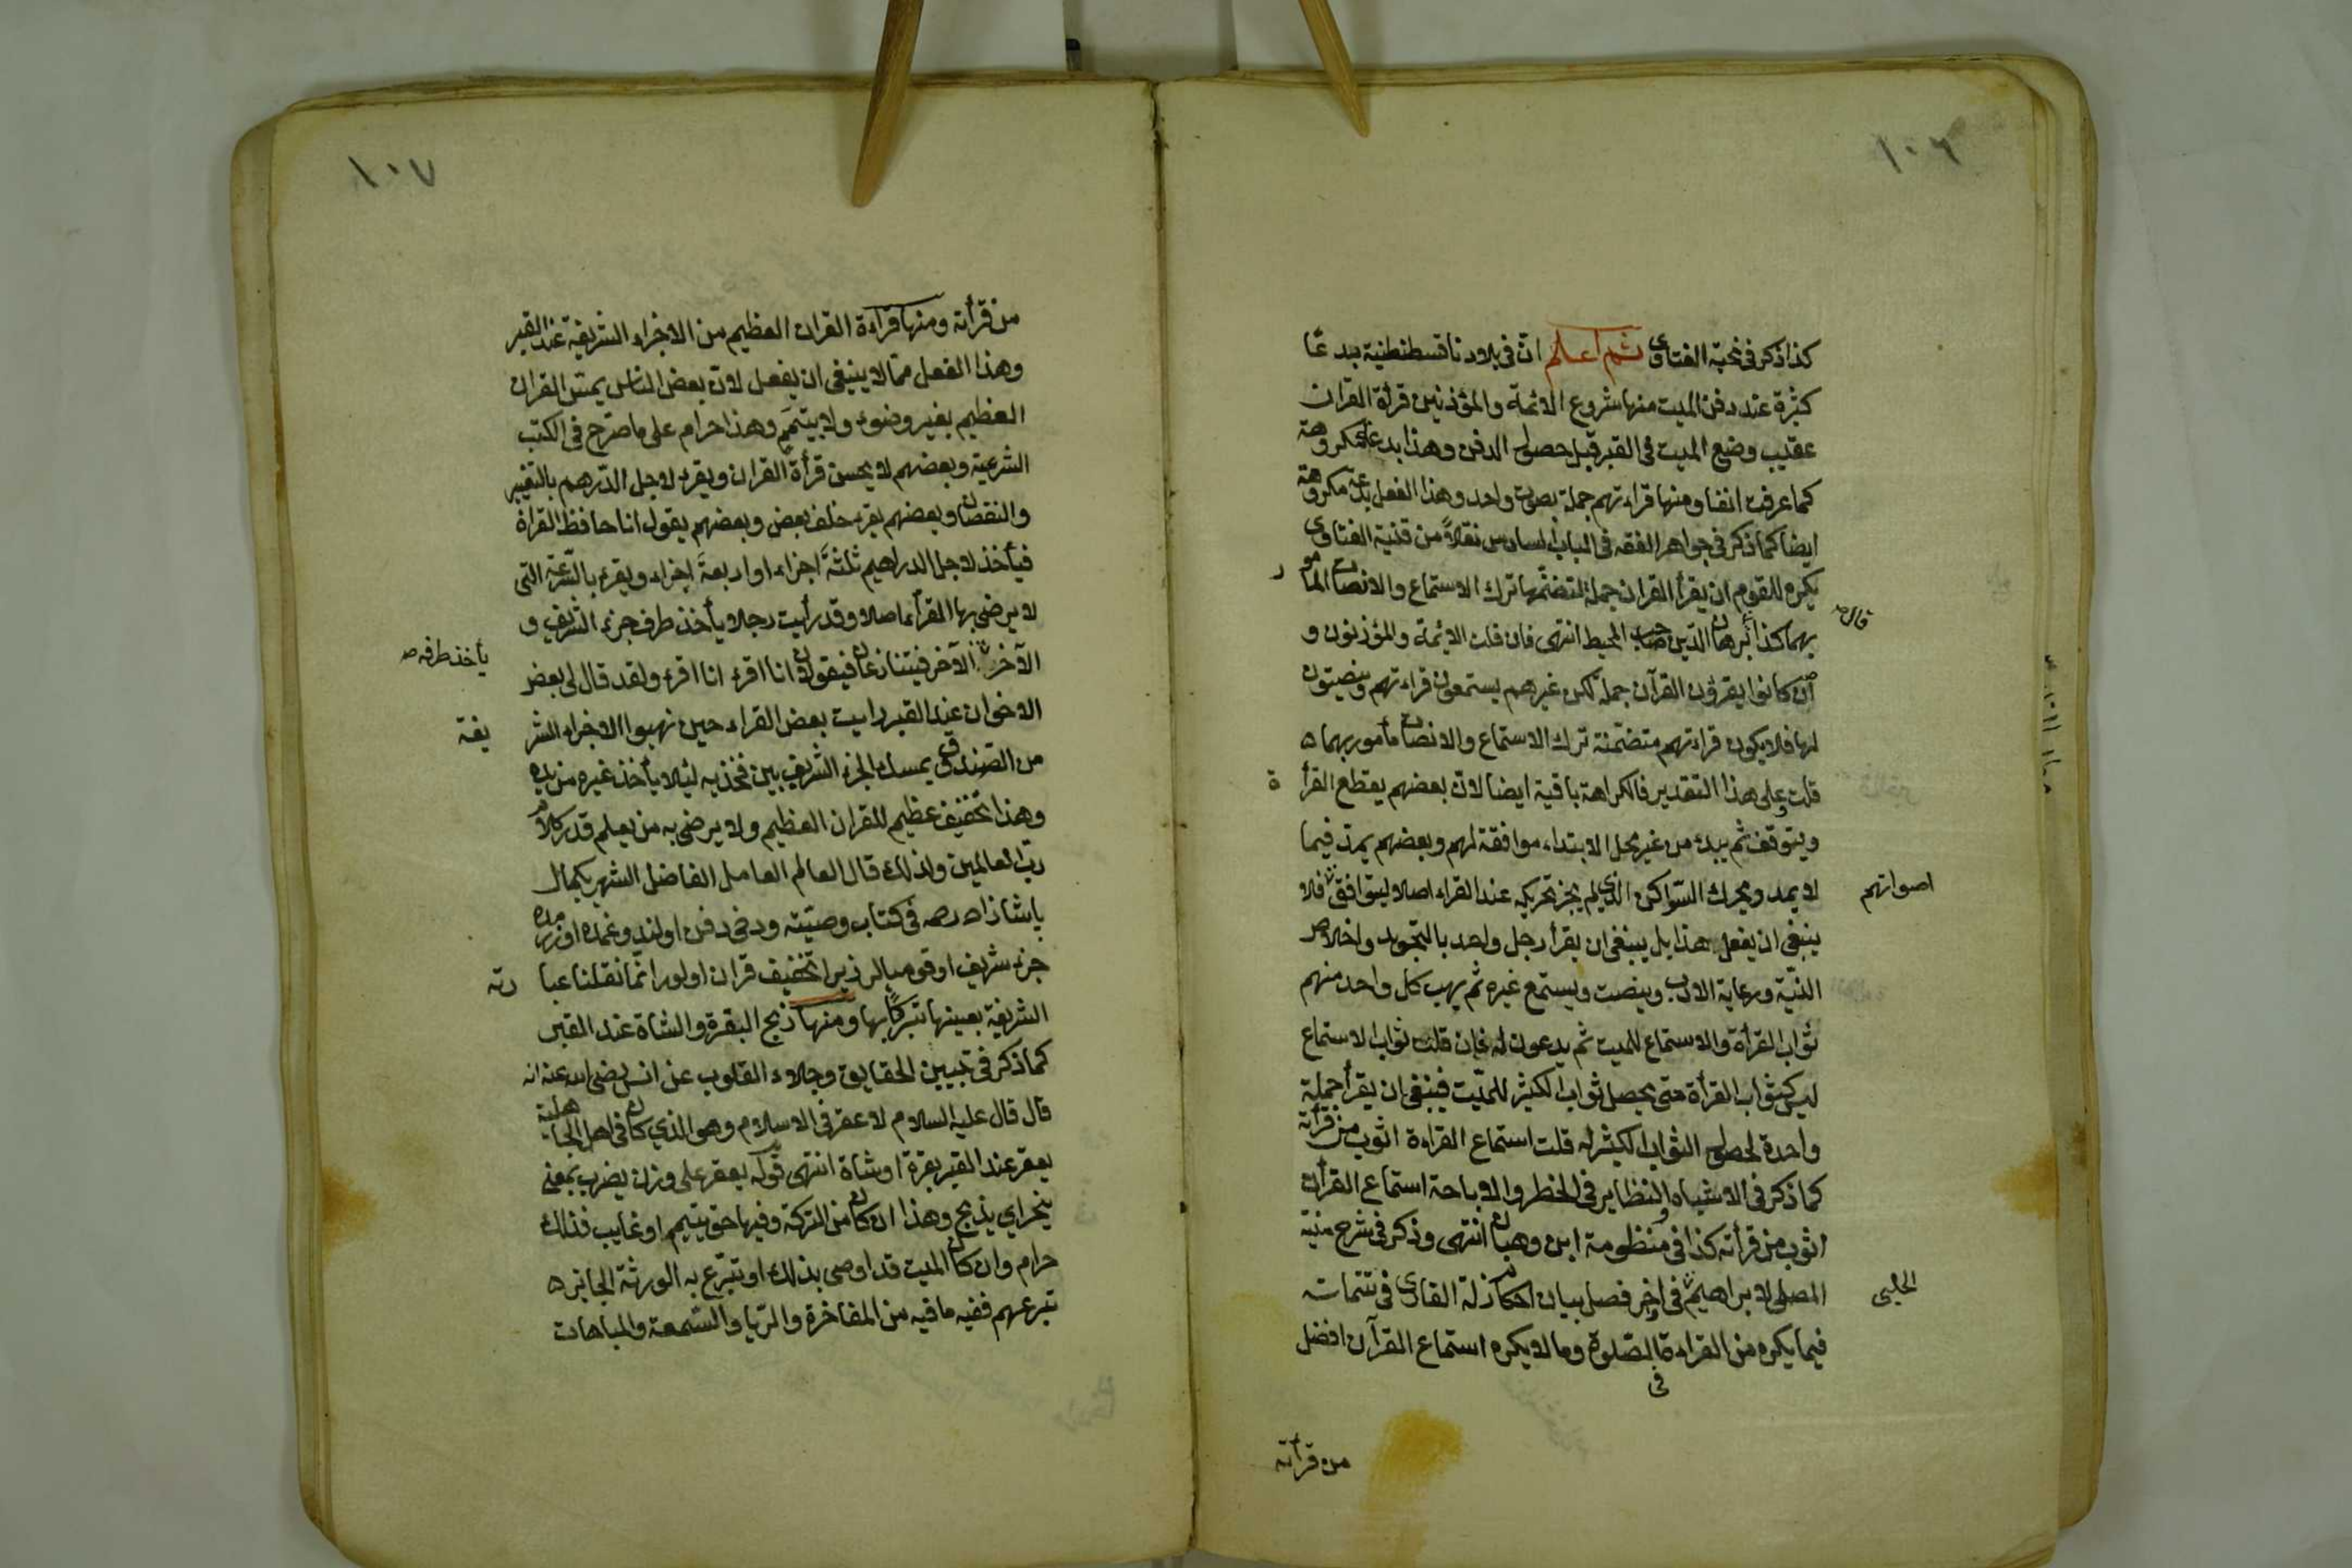 ١٠٦
كذا ذكر فى نخبة الفتاوى ثم اعلم ان فى بلادنا قسطنطنية بدعا
كثيرة عند دفن الميت منها شروع الائمة والمؤذنين قرأة القران
عقيب وضع الميت فى القبر قبل حصول الدفن وهذا بدعة مكروهة
كما عرفت انفا ومنها قراءتهم جملة بصوت واحد وهذا الفعل بدعة مكروهة
ايضا كما ذكر فى جواهر الفقه فى الباب السادس نقلاً من قنية الفتاوى
يكره للقوم ان يقرأ القران جملة لتضمنها ترك الاستماع والانصات المأمور
بهما كذا قال برهان الدين صاحب المحيط انتهى فان قلت الائمة والمؤذنون و
ان كانوا يقرؤن القرآن جملة لكن غيرهم يستمعون قراءتهم وينصيتون
لها فلا يكون قراءتهم متضمنة ترك الاستماع والانصات مأمور بهما ه
قلت وعلى هذا التقدير فالكراهة باقية ايضا لان بعضهم يقطع القرأة
ويتوقف ثم يبدء من غير محل الابتداء موافقة لهم وبعضهم يمد فيما
لا يمد ويحرك السواكن الذى لم يجز تحريكه عند القراء اصلا ليتوافق اصواتهم فلا
ينبغى ان يفعل هذا بل ينبغى ان يقرأ رجل واحد بالتجويد واخلاص
النية ورعاية الادب وينصت ويستمع غيره ثم يهب كل واحد منهم
ثواب القرأة والاستماع للميت ثم يدعون له فان قلت ثواب الاستماع
ليس كثواب القرأة حتى يحصل ثواب الكثير للميت فينبغى ان يقرأ جملة
واحدة لحصول الثواب الكثير له قلت استماع القراءة اثوب من قرأته
كما ذكر فى الاشباه والنظاير فى الحظر والاباحة استماع القرأن
اثوب من قرأته كذا فى منظومة ابن وهبان انتهى وذكر فى شرح منية
المصلى لابراهيم الحلبى فى اخر فصل بيان احكام زلة القارى فى تتمات
فيما يكره من القراءة فى الصلوة وما لا يكره استماع القرآن افضل
من قرأته
١٠٧
من قرأته ومنها قراءة القران العظيم من الاجزاء الشريفة عند القبر
وهذا الفعل مما لا ينبغى ان يفعل لان بعض الناس يمس القران
العظيم بغير وضوء ولا يتيمم وهذا حرام على ما صرح فى الكتب
الشرعية وبعضهم لا يحسن قرأة القران ويقرء لاجل الدرهم بالتغيير
والنقصان وبعضهم يقرء خلف بعض وبعضهم يقول انا حافظ القرأة
فيأخذ لاجل الدراهيم ثلثة اجزاء او اربعة اجزاء ويقرء بالسرعة التى
لا يرضى بها القرأء اصلا وقد رأيت رجلا يأخذ طرف جزء الشريف و
الآخر يأخذ طرفه الآخر فيتنازعان فيقولان انا اقرء انا اقرء ولقد قال لى بعض
الاخوان عند القبر رايت بعض القراء حين نهبوا الاجزاء الشريفة
من الصندوق يمسك الجزء الشريف بين فخذيه لئلا يأخذ غيره من يده
وهذا تخفيف عظيم للقران العظيم ولا يرضى به من يعلم قدر كلام
رب العالمين ولذلك قال العالم العامل الفاضل الشهير بكمال
پاشا زاده رحمه فى كتاب وصيته ودخى دفن اولندوغمده اوزرمده
جزء شريف اوقوميالر زيرا تخفيف قران اولور انما نقلنا عبارته
الشريفة بعينها تبركا بها ومنها ذبح البقرة والشاة عند القبر
كما ذكر فى تبيين الحقايق وجلاء القلوب عن انس رضى الله عنه انه
قال قال عليه السلام لا عقر فى الاسلام وهو الذي كان فى اهل الجاهلية
يعقر عند القبر بقرة او شاة انتهى قوله يعقر على وزن يضرب بمعنى
ينحر اي يذبح وهذا ان كان من التركة وفيها حق يتيم او غايب فذلك
حرام وان كان الميت قد اوصى بذلك او تبرع به الورثة الجائز ه
تبرعهم ففيه ما فيه من المفاخرة والريا والسمعة والمباهات